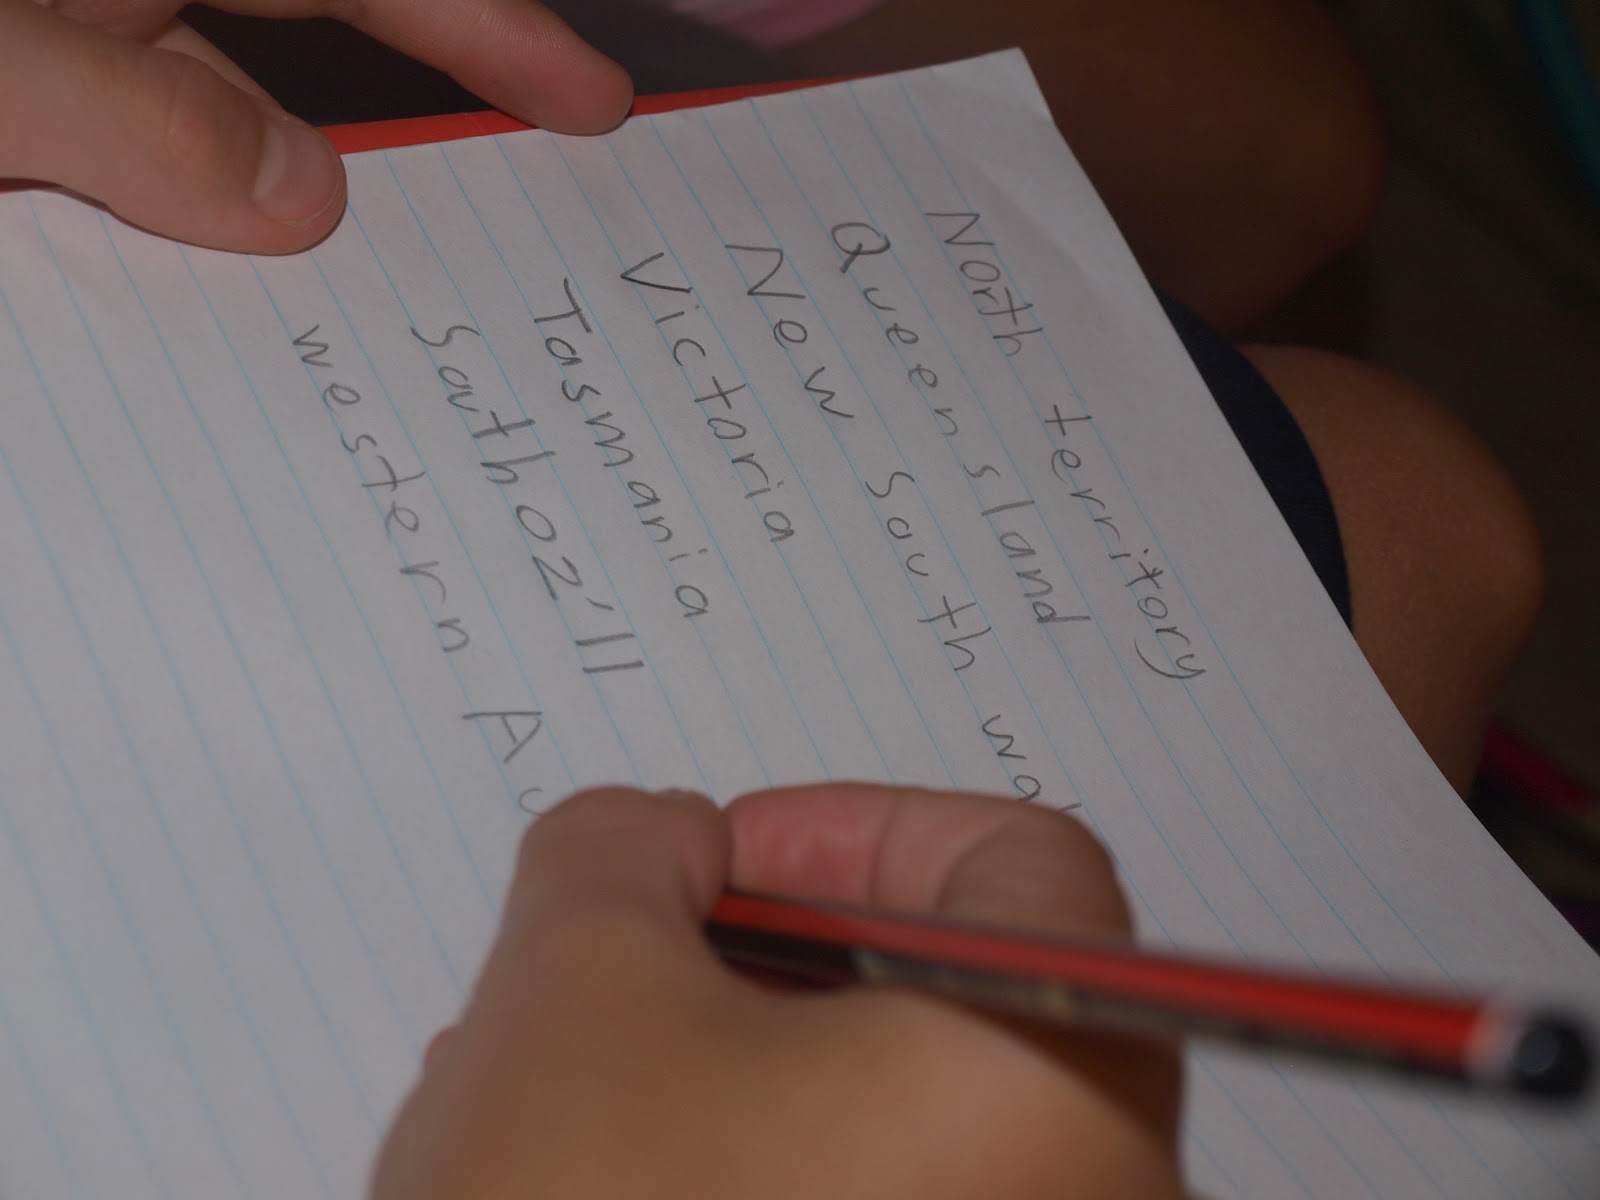 North territory
Queensland
New South wal
Victoria
Tasmania
South oz'll
western Au